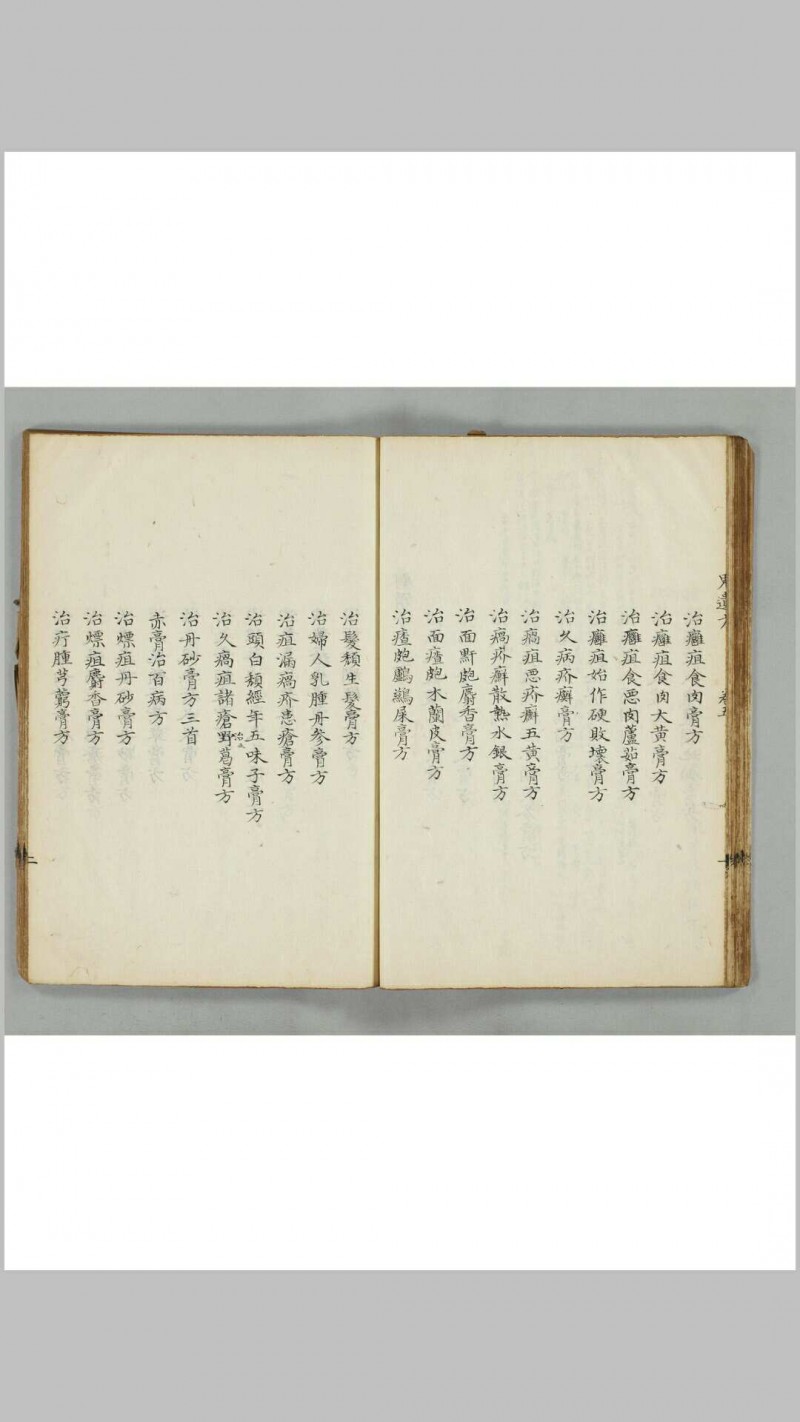 治癰疽食肉膏方
治癰疽食肉大黄膏方
治癰疽食惡肉蘆茹膏方
治癰疽始作硬敗壞膏方
治久病疥癬膏方
治瘑疽惡疥癬五黄膏方
治瘑疥癬散熱水銀膏方
治面䵟皰麝香膏方
治面𤵜皰木蘭皮膏方
治𤵜皰鸕鷀屎膏方
治髮頽生髮膏方
治婦人乳腫丹参膏方
治疽漏瘑疥患瘡膏方
治頭白頽經年五味子膏方
治久瘑疽諸瘡野葛膏方
治丹砂膏方三首
赤膏治百病方
治㾺疽丹砂膏方
治㾺疽麝香膏方
治疔腫芎藭膏方
二